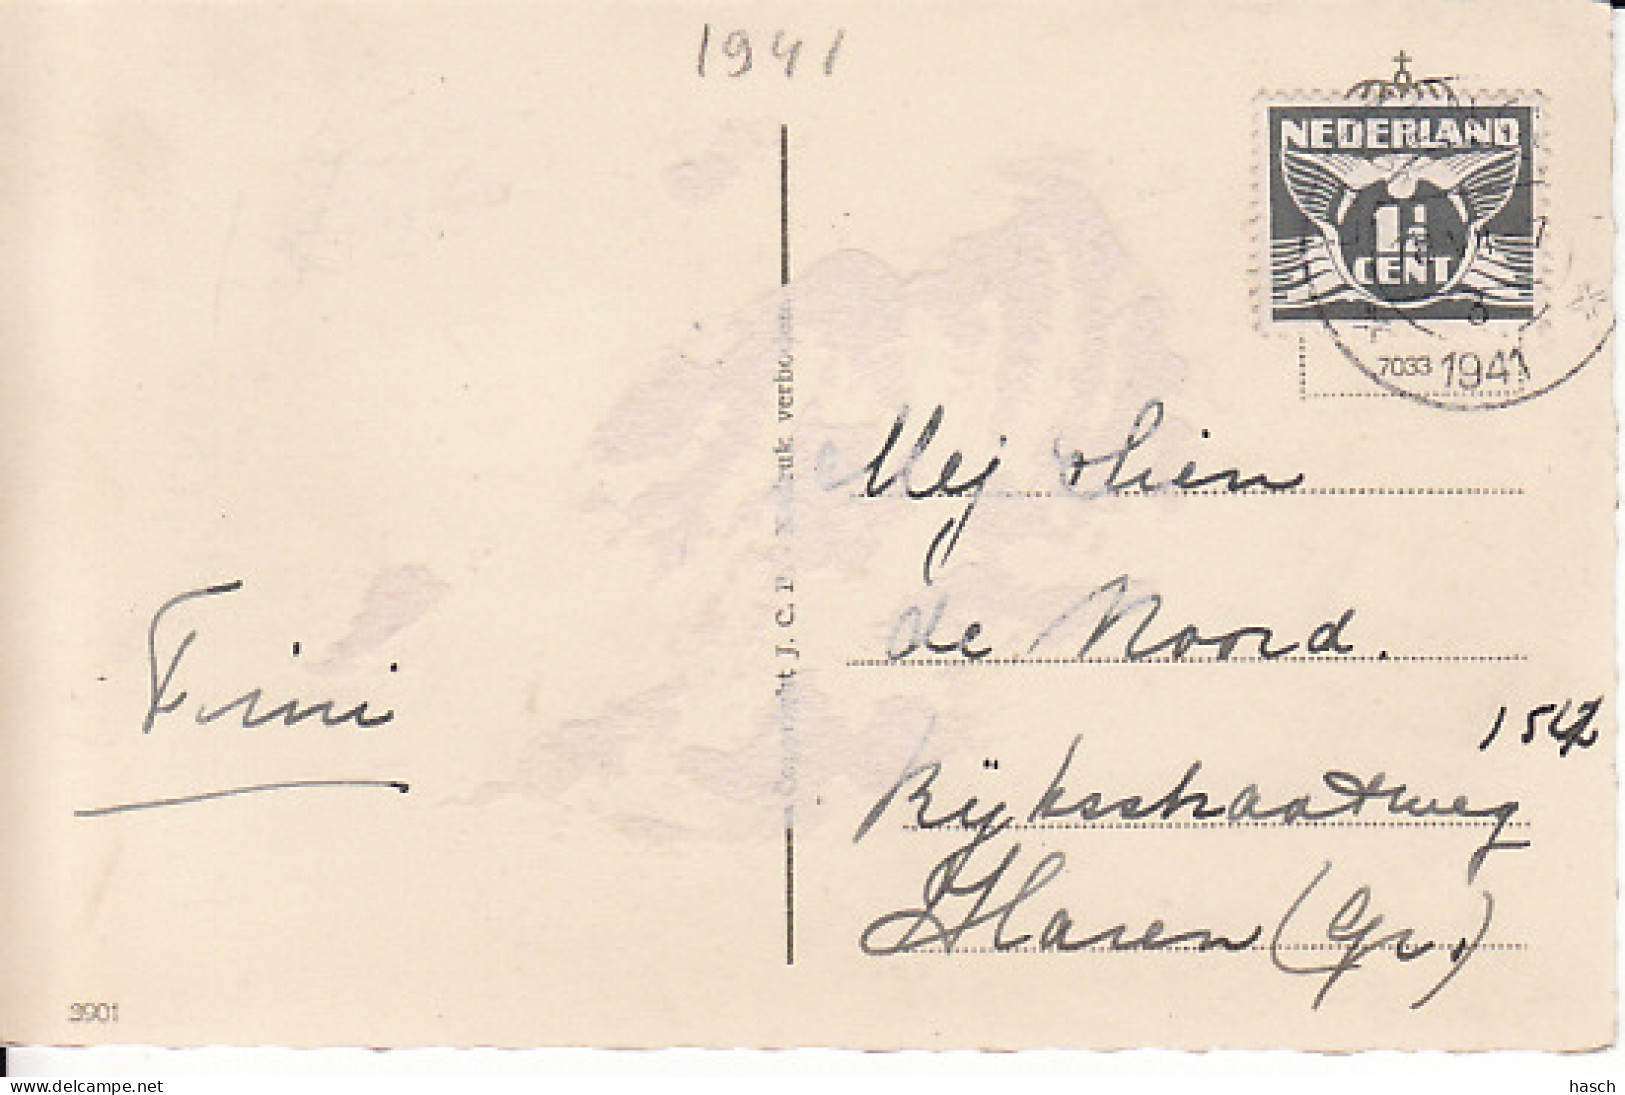 1941
NEDERLAND
1½
CENT
3
7033 1941
Mej
de Noord.
154
Rijksstraatweg
Haren (Gr.)
Fini
Copyright J. C. P. Nadruk verboden
3901
delcampe.net
hasch